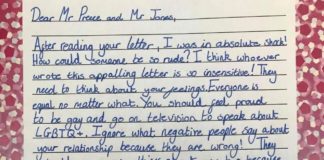 Dear Mr Preece and Mr Jones,
After reading your letter, I was in absolute shock!
How could someone be so rude? I think whoever
wrote this appalling letter is so insensitive! They
need to think about your feelings. Everyone is
equal no matter what. You should feel proud
to be gay and go on television to speak about
LGBTQ+. Ignore what negative people say about
your relationship because they are wrong! They